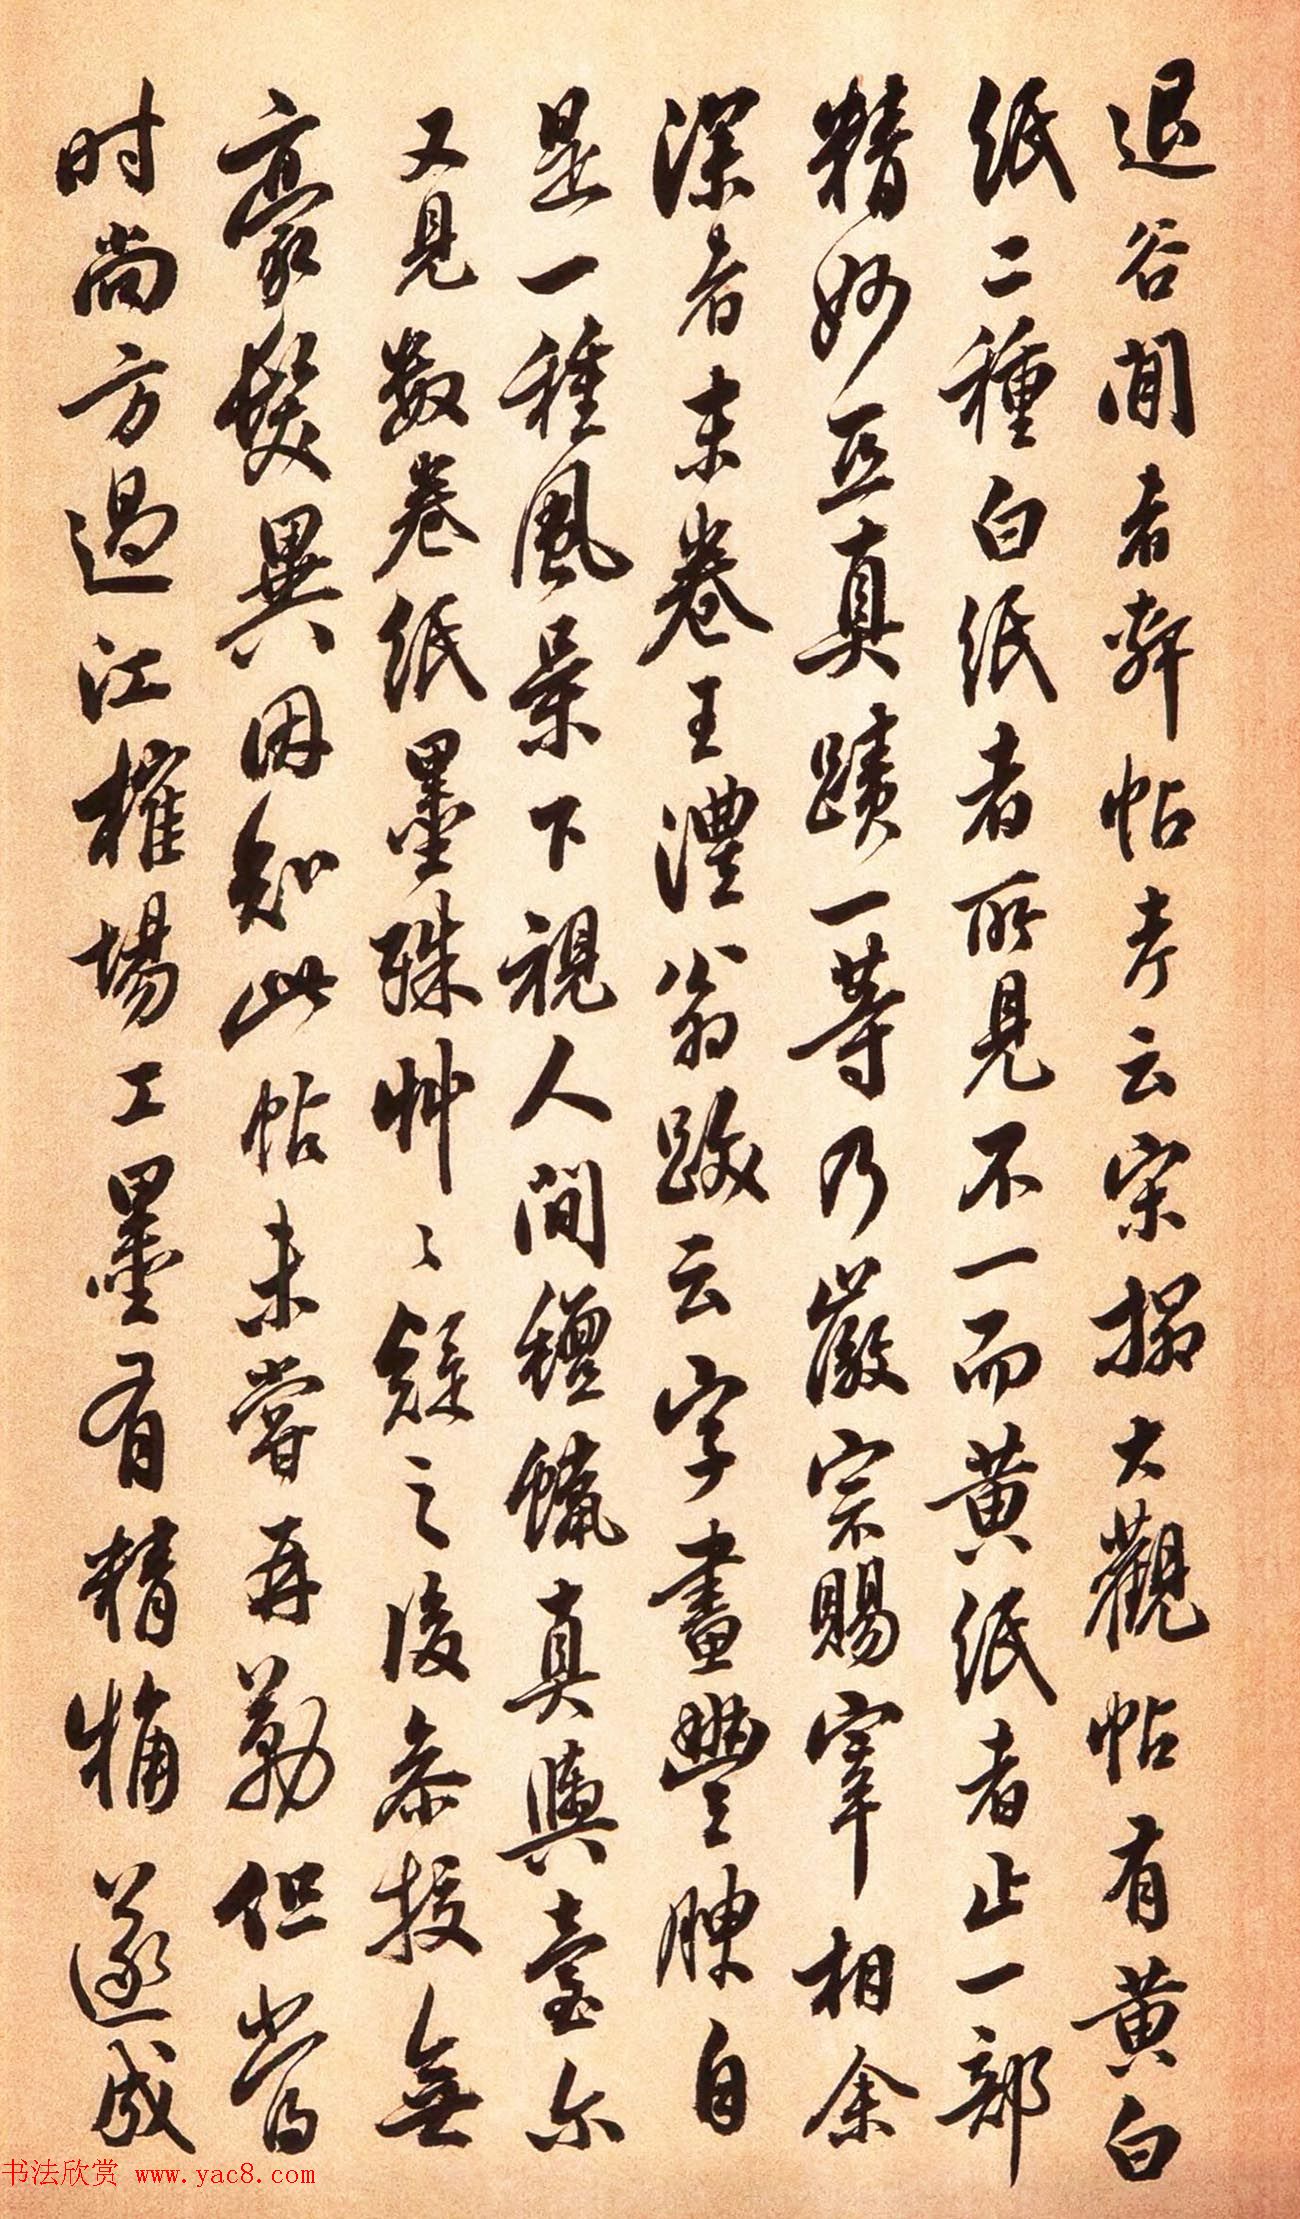 退谷閒者軒帖考云宋搨大觀帖有黄白
紙二種白紙者所見不一而黄紙者止一部
精妙亞真蹟一等乃徽宗賜宰相余
深者末卷王澧翁跋云字畫豐腴自
是一種風景下視人間氊蠟真輿臺尔
又見數卷紙墨殊艸〻疑之後叅挍無
豪髮異因知此帖未嘗再勒但當
時尚方過江榷場工墨有精觕遂成
书法欣赏 www.yac8.com